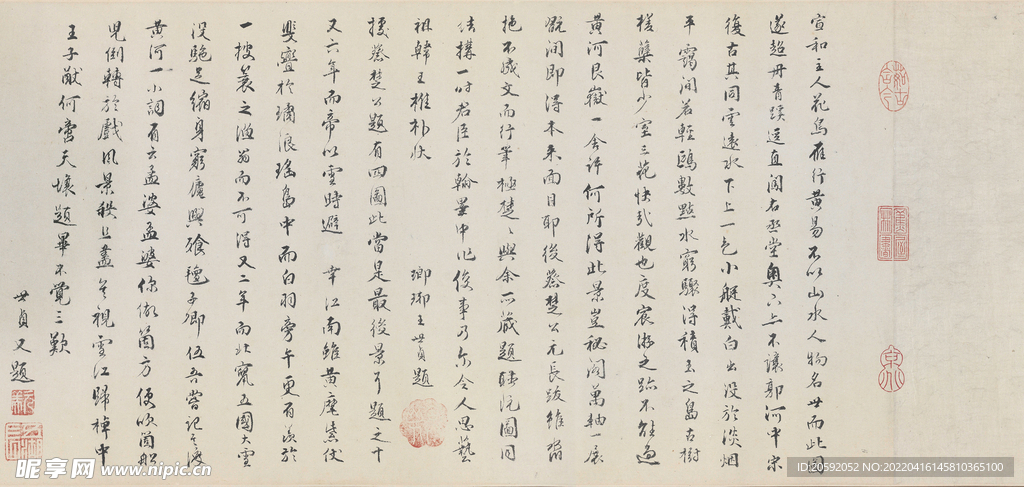 宣和主人花鳥雁行黃易不以山水人物名世而此圖
遂超丹青蹊逕直闖右丞堂奧下亦不讓郭河中宋
復古其同雲遠水下上一色小艇戴白出没於淡烟
平靄間若輕鷗數點水窮驟得積玉之島古樹
槎蘖皆少室三花快哉觀也度宸游之跡不能過
黃河艮嶽一舍許何所得此景豈秘閣萬軸一展
翫間即得本來面目耶後蔡楚公元長跋雖沓
拖不成文而行筆極楚楚與余所藏題聽阮圖同
結構一時君臣於翰墨中作俊事乃尓令人思藝
祖韓王椎朴狀
瑯琊王世貞題
按蔡楚公題有四圖此當是最後景耳題之十
又六年而帝以雪時避 幸江南雖黃麾紫仗
斐亹於璚浪瑤島中而白羽旁午更有羨於
一披簑之漁翁而不可得又二年而北竄五國大雪
没駝足縮身穹廬與飧氊子卿伍吾嘗記其渡
黃河一小詞有云孟婆孟婆你做箇方便吹箇船
兒倒轉於戲風景秩且盡無視雪江歸棹中
王子猷何啻天壤題畢不覺三歎
世貞又題
昵享网 www.nipic.cn
ID:20592052 NO:20220416145810365100